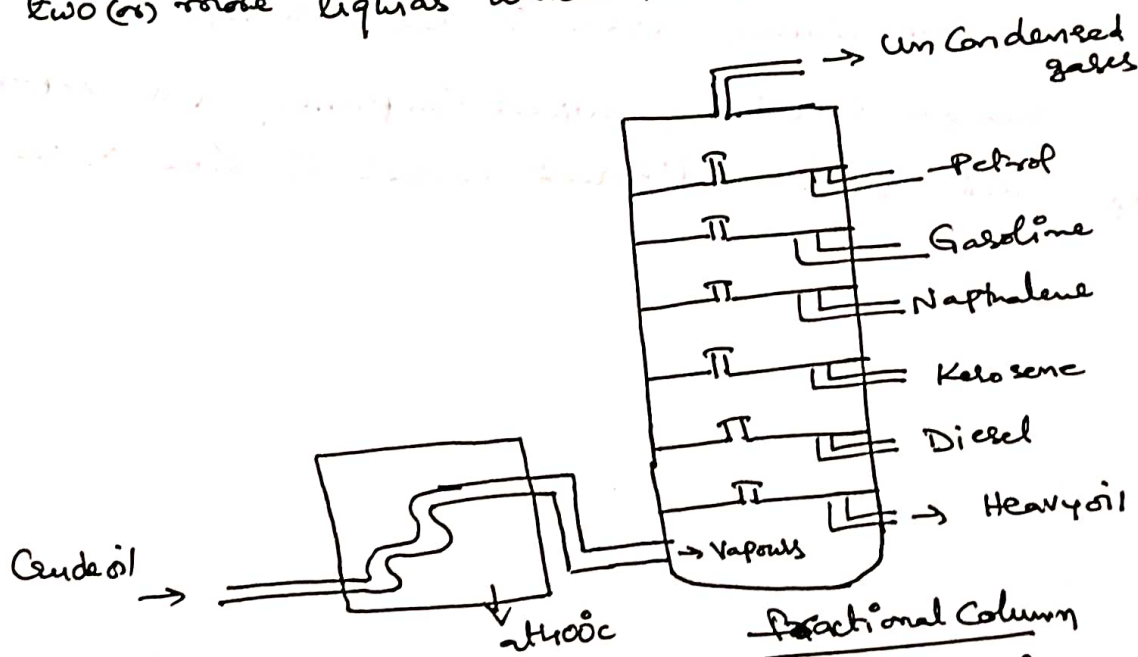 two (or) more liquids
Uncondensed
gases
Petrol
Gasoline
Napthalene
Kerosene
Diesel
Heavy oil
Vapours
Crude oil
at 400°c
Fractional Column